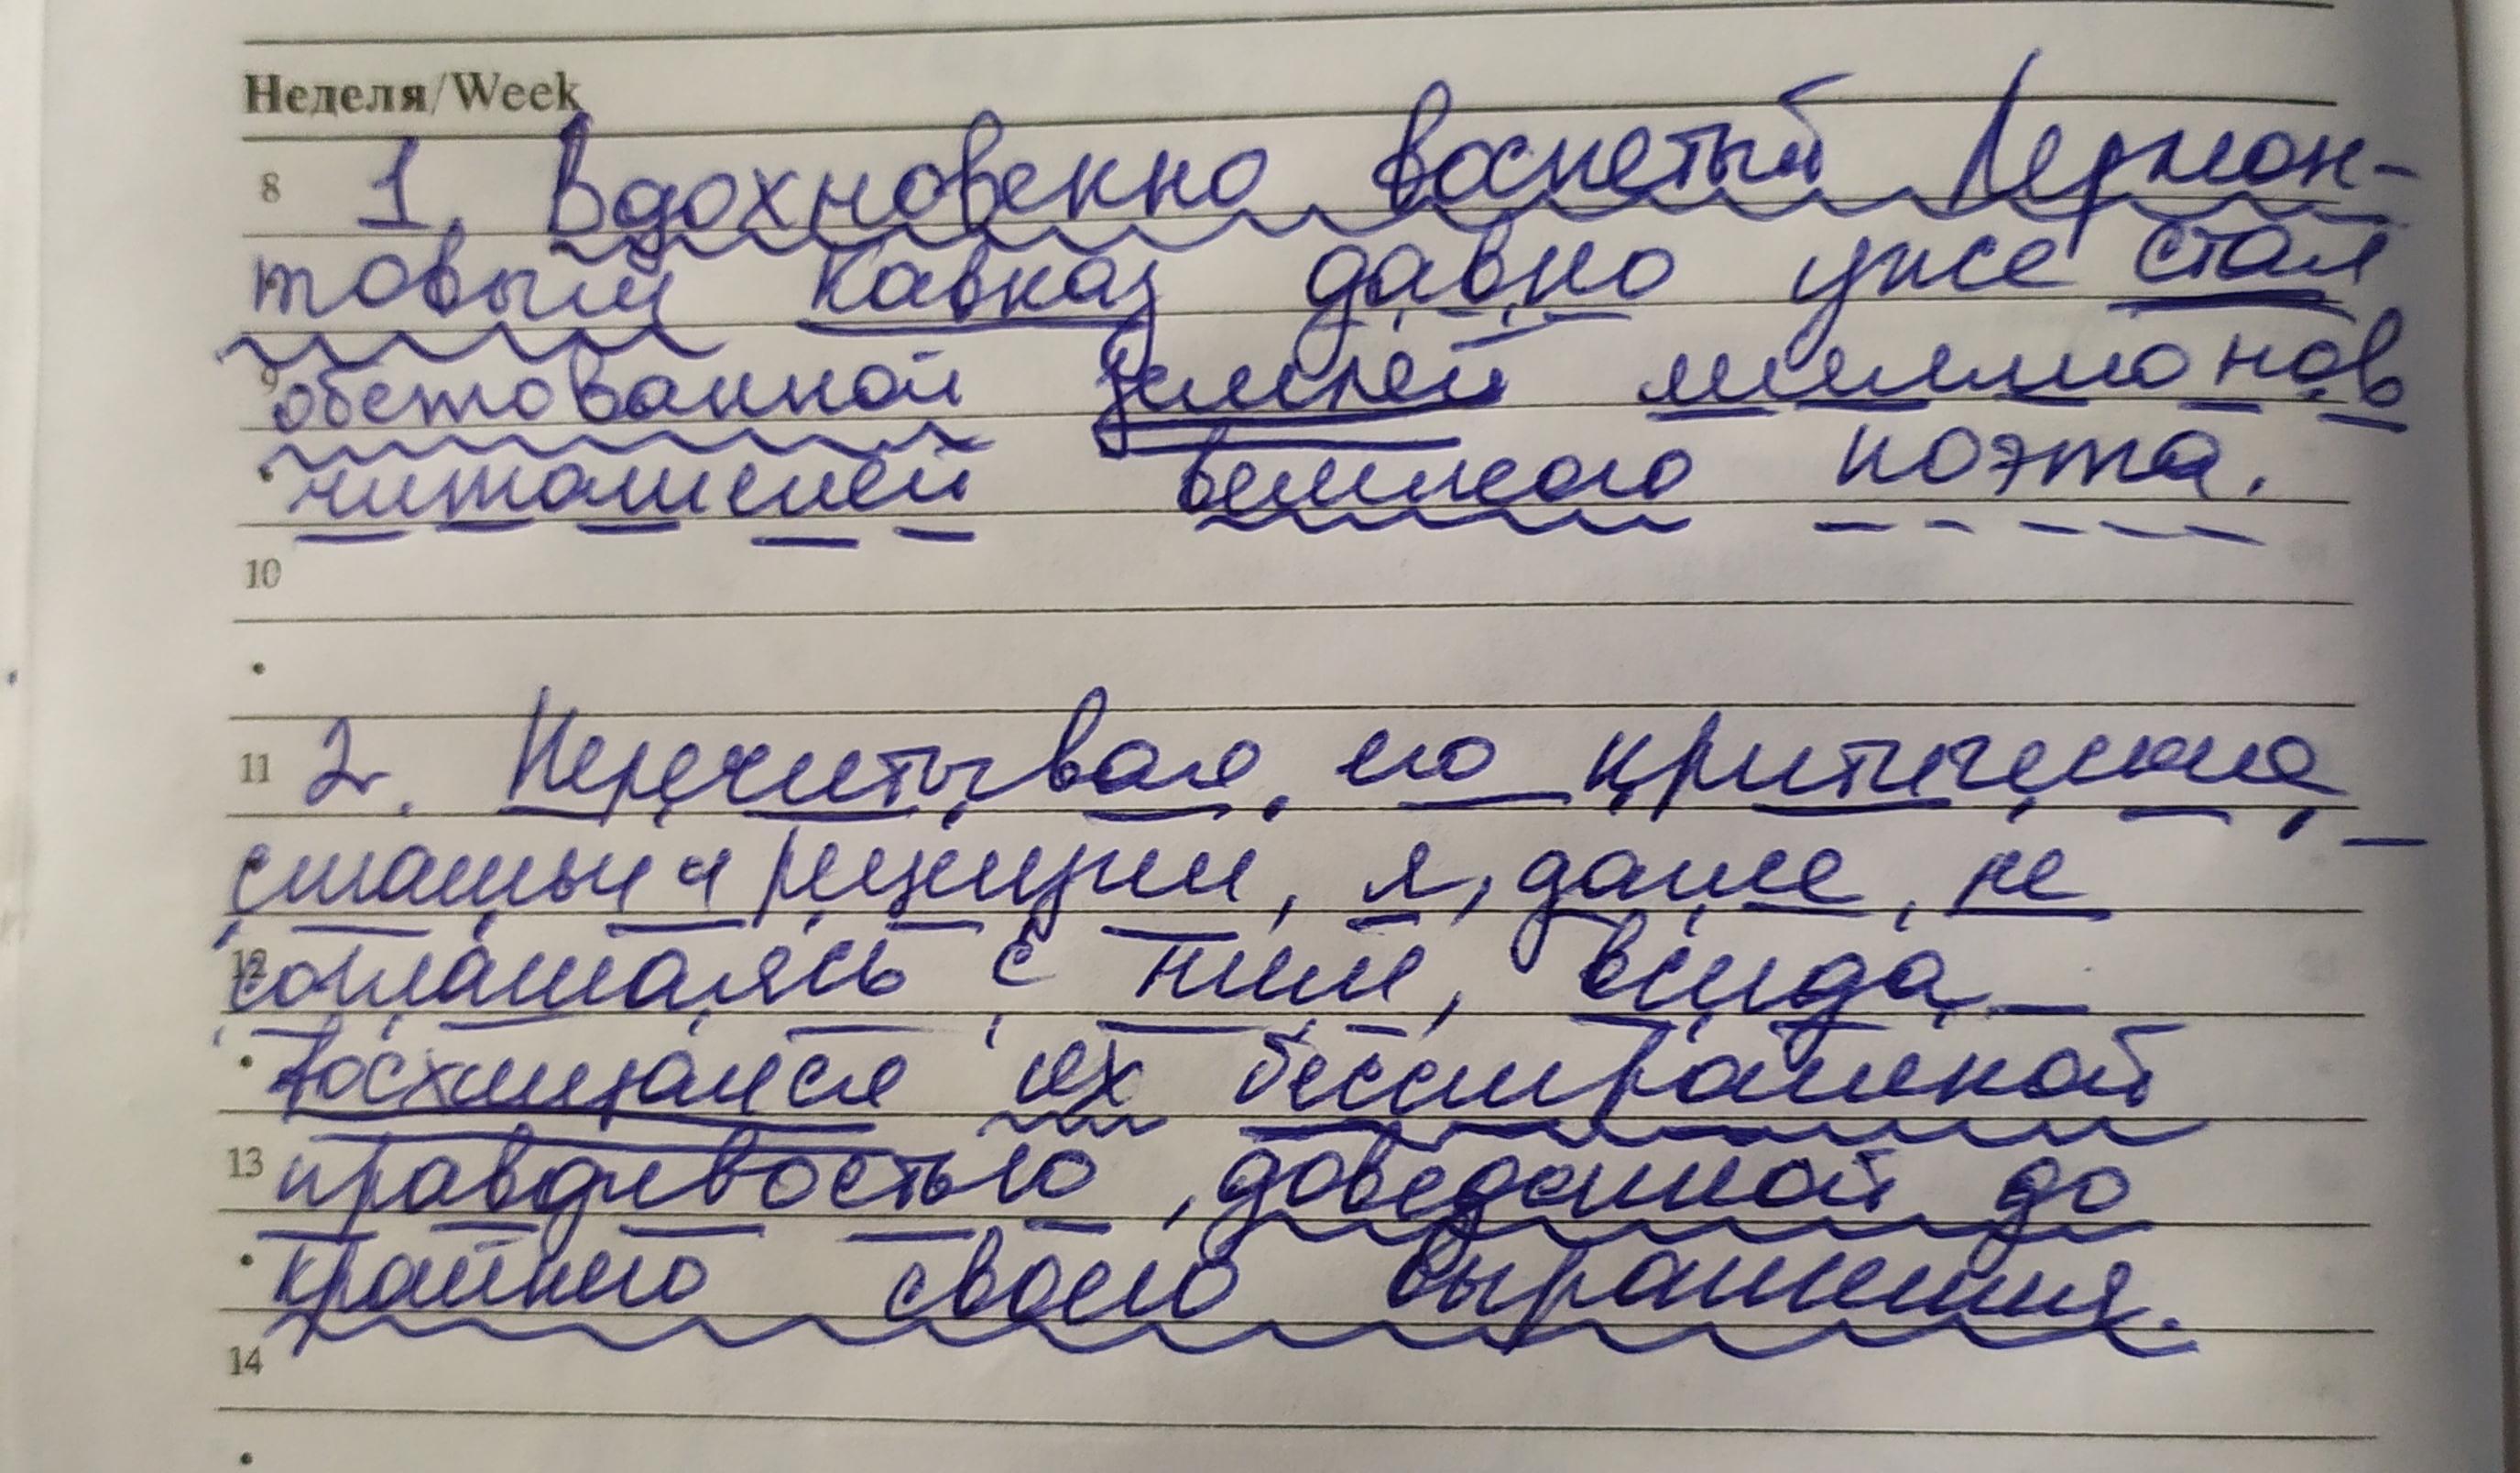 Неделя/Week
8 1. Вдохновенно воспетый Лермон-
товым Кавказ давно уже стал
9 обетованной землей миллионов
читателей великого поэта.
10
11 2. Перечитывая его критические
статьи и рецензии, я, даже не
12 соглашаясь с ним, всегда
восхищаюсь их бесстрашной
13 правдивостью, доведенной до
крайнего своего выражения.
14